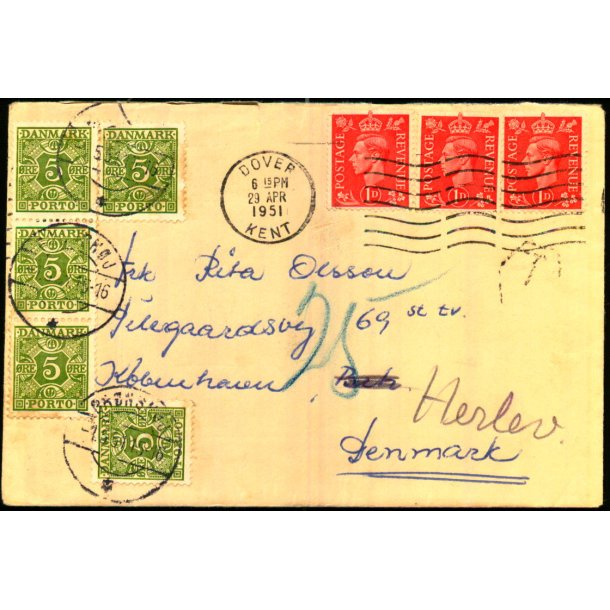 DANMARK
5
ØRE ØRE
PORTO
DANMARK
5
ØRE
PORTO
5
ØRE ØRE
PORTO
DANMARK
5
ØRE ØRE
PORTO
DANMARK
5
ØRE
PORTO
DOVER
6 15PM
29 APR
1951
KENT
POSTAGE REVENUE
1D
POSTAGE REVENUE
1D
POSTAGE REVENUE
1D
Frk Rita Olsson
69, st tv.
København
25
Herlev
Denmark